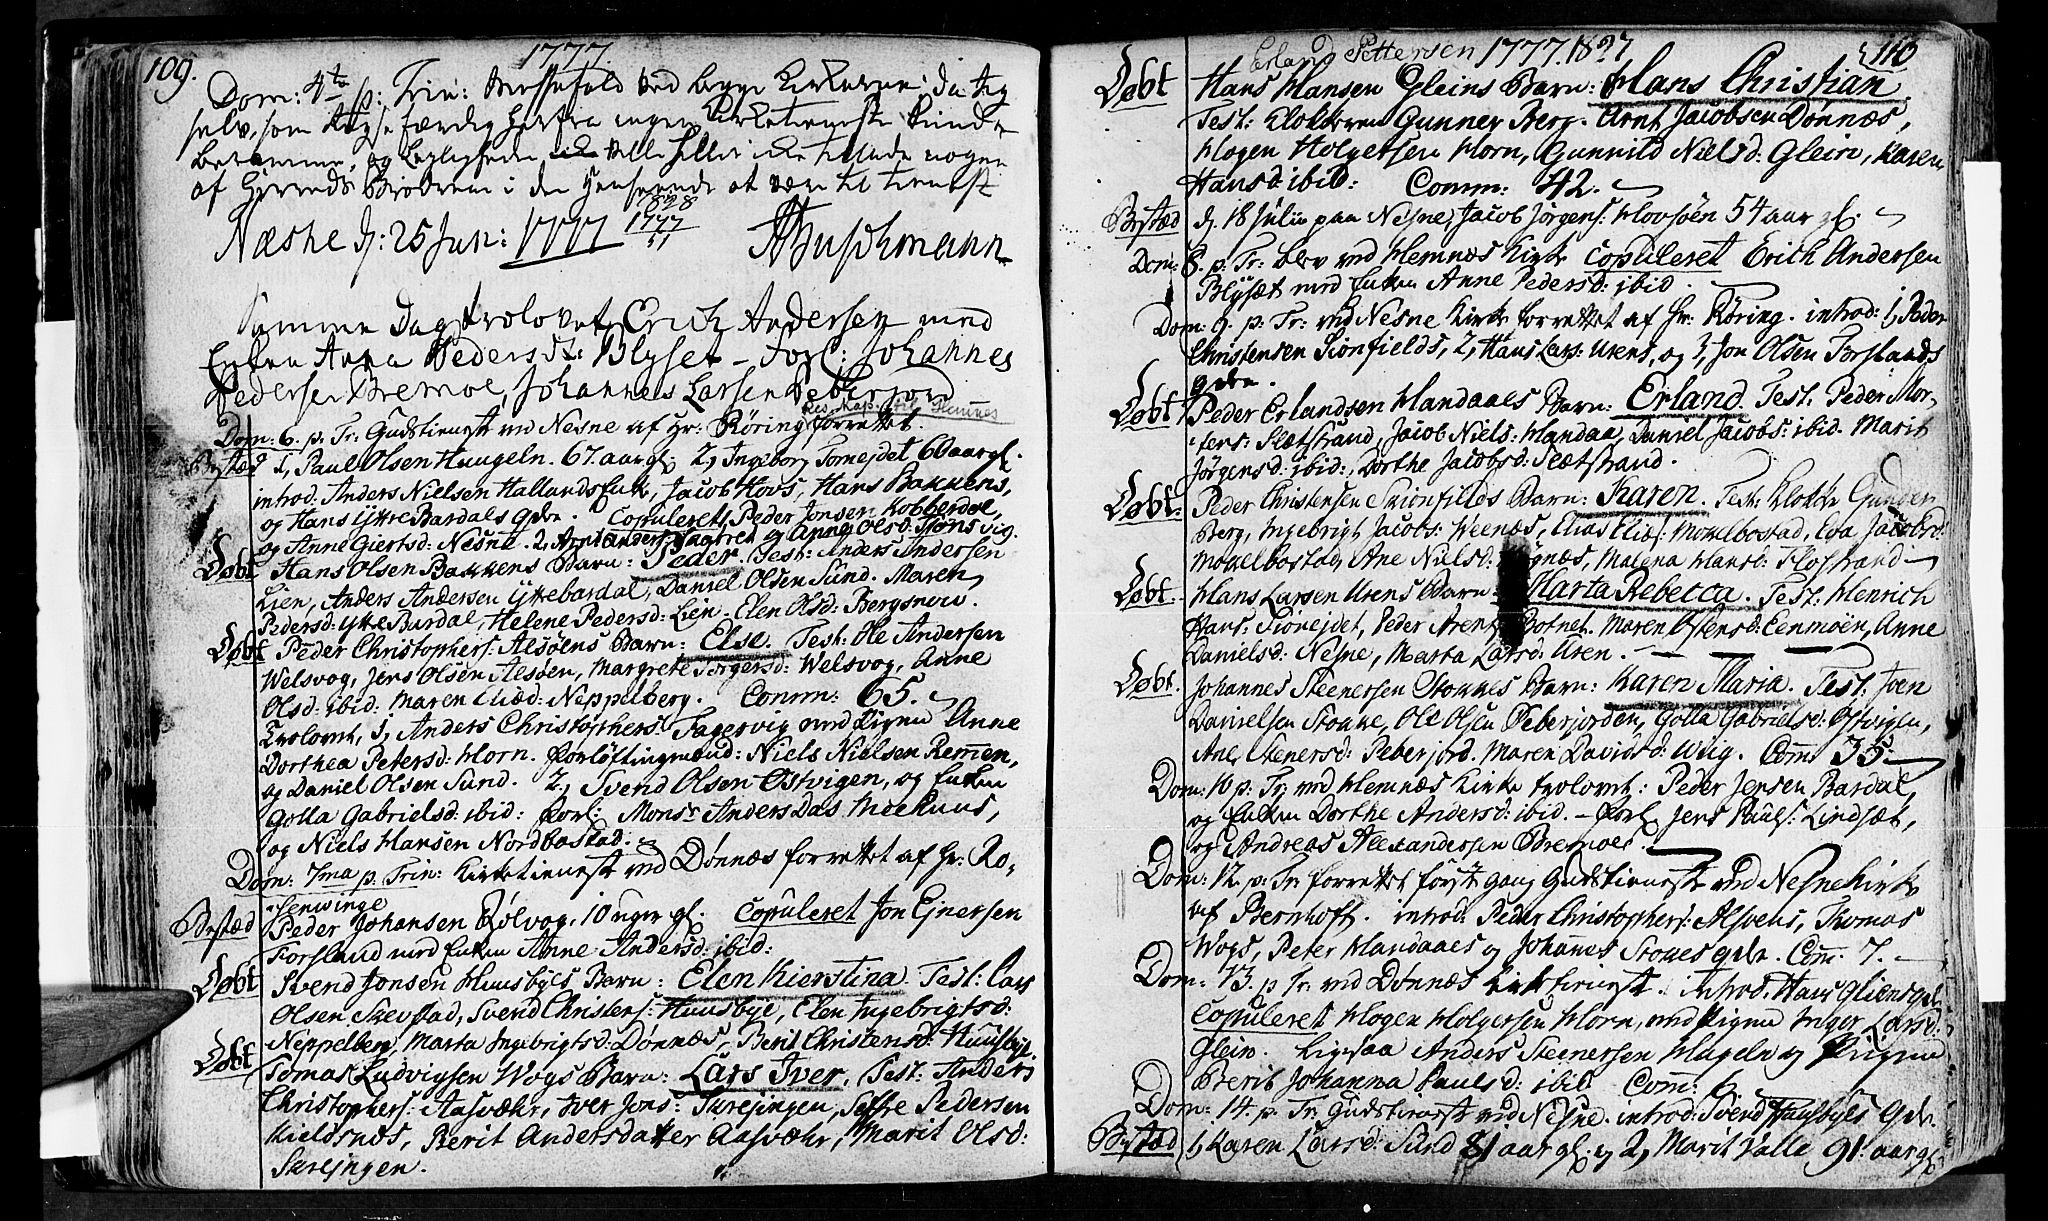 109.
1777.
Dom: 4te p: Trin: Messefald ved begge Kirkerne, da jeg
selv, som Reysefærdig herfra ingen Kirketieneste kunde
bekomme, og Leyligheden ville heller ikke tillade nogen
af Herreds Brødrene i den henseende at være til tieneste
Næsne d: 25 Jun: 1777
1828
1777
51
A Buschmann
Samme Dag trolovet Erich Andersen med
Enken Anna Pedersdt: Blyset - Forl: Johannes
Pedersen Bremoe, Johannes Larsen Leberjord
Res. Kap. til Hemnes
Dom: 6. p: Tr: Gudstienest ved Nesne af Hr: Röring forrettet.
Bestæd 1, Paul Olsen Huugeln. 67. aar gl: 2, Ingeborg Tomejdet 60 aar gl.
introd: Anders Nielsen Hallands Enk, Jacob Hovs, Hans Bakkens,
og Hans Ytre Bardals qvde. Copuleret 1, Peder Jonsen Kobberdal,
og Anne Giertsd: Nesne. 2, Arnt Anders: Fagervig og Anne Olsd: Stensvig.
Døbt Hans Olsen Bakkens Barn: Peder Test: Anders Andersen
Lien, Anders Andersen Yttrebardal, Daniel Olsen Sund. Maren
Pedersd: Yttre Bardal, Helene Pedersd: Lien. Elen Olsd: Bergsnov.
Døbt Peder Christophers: Alsöens Barn: Else Test: Ole Andersen
Welsvog, Jens Olsen Alsöen, Margrete Torgersd: Welsvog, Anne
Olsd: ibid: Maren Eliæd: Neppelberg. Comm: 65.
Trolovet, 1, Anders Christophers: Fagervig med Pigen Anne
Dorthea Petersd: Horn. Forlöftingmænd: Niels Nielsen Remen,
og Daniel Olsen Sund. 2, Svend Olsen Östvigen, og Enken
Golla Gabrielsd: ibid: Forl: Monsr Anders Das Meehuus,
og Niels Hansen Nordbostad.
Dom: 7ma p: Trin: Kirketienest ved Dønnæs forrettet af Hr: Ro-
senvinge
Bestæd Peder Johansen Rölvog. 10 uger gl. Copuleret Jon Ejnersen
Forsland med Enken Anne Andersd: ibid:
Døbt Svend Jonsen Huusbyes Barn: Elen Kierstina Test: Lars
Olsen Skevstad, Svend Christens: Huusbye, Elen Ingebrigtsd:
Neppelberg, Marta Ingebrigtsd: Dønnæs, Berit Christensd: Huusbye.
Døbt Tomas Ludvigsen Wogs Barn: Lars Iver. Test: Anders
Christophers: Aasvæhr, Iver Jons: Skrejingen, Seffre Pedersen
Kieldsnæs, Berit Andersdatter Aasvæhr, Marit Olsd:
Skrejingen.
Erland Pettersen 1777. 1827
110
Døbt Hans Hansen Gleins Barn: Hans Christian.
Test: Klokkeren Gunner Berg. Arnt Jacobsen Dønnæs,
Hogen Holgersen Horn, Gunnild Nielsd: Glein, Karen
Hansd: ibid: Comm: 42.
Bestæd d. 18 Julii paa Nesne, Jacob Jörgens: Hovsöen 54 aar gl.
Dom: 8. p: Tr: blev ved Hemnæs Kirke Copuleret Erich Andersen
Blysæt med Enken Anne Pedersd: ibid.
Dom: 9. p: Tr: ved Nesne Kirke forrettet af Hr: Röring. introd: 1, Peder
Christensen Sionfields, 2, Hans Lars: Urens, og 3, Jon Olsen Forslands
qvde.
Døbt Peder Erlandsen Handaaes Barn: Erland. Test: Peder Mor-
tens: Slætstrand, Jacob Niels: Handaa, Daniel Jacobs: ibid. Marit
Jörgensd: ibid:, Dorthe Jacobsd: Slætstrand.
Døbt: Peder Christensen Sionfields Barn: Karen. Test: Klokker Gunder
Berg, Ingebrigt Jacobs: Weenæs, Elias Eliæ: Mokelbostad, Eva Jacobsd:
Mokelbostad, Ane Nielsd: Malena Hansd: Flostrand
Døbt Hans Larsen Urens Barn: Marta Rebecca. Test: Henrich
Hans: Sionejdet, Peder Arentz: Botnet. Maren Östensd: Eenmöen, Anne
Danielsd: Nesne, Marta Larsd: Uren.
Døbt. Johannes Steenersen Stokkes Barn: Karen Maria. Test: Joen
Danielsen Stokke, Ole Olsen Peberjorden, Golla Gabrielsd: Östvigen,
Ane Stenersd: Peberjord. Maren Davidsd: Uvig. Com: 35.
Dom: 10 p: Tr: ved Hemnæs Kirke trolovet: Peder Jensen Bardal,
og Enken Dorthe Andersd: ibid. - Forl: Jens Pauls: Lindsæt,
og Andreas Alexandersen Bremoe.
Dom: 12. p: Tr: forrettet först gang Gudstienest ved Nesne Kirke
af Bernhoft. introd: Peder Christophers: Alsöens, Thomas
Wogs, Peter Handaaes og Johanes Stokes qvdr. Com: 7.
Dom: 13. p Tr: ved Dønnæs Kirktienest. Introd. Hans Gliens qv.
Copuleret Hogen Holgersen Horn, med Pigen Inger Larsd:
Glein. Ligesaa Anders Steenersen Hageln og Pigen
Berit Johanna Paulsd: ibid Com: 6
Dom: 14. p: Tr: Gudstienest ved Nesne. introd: Svend Huusbyes qvdr.
Bestæd 1, Karen Larsd: Sund 81 aar gl. og 2, Marit Valle 91. aar gl.